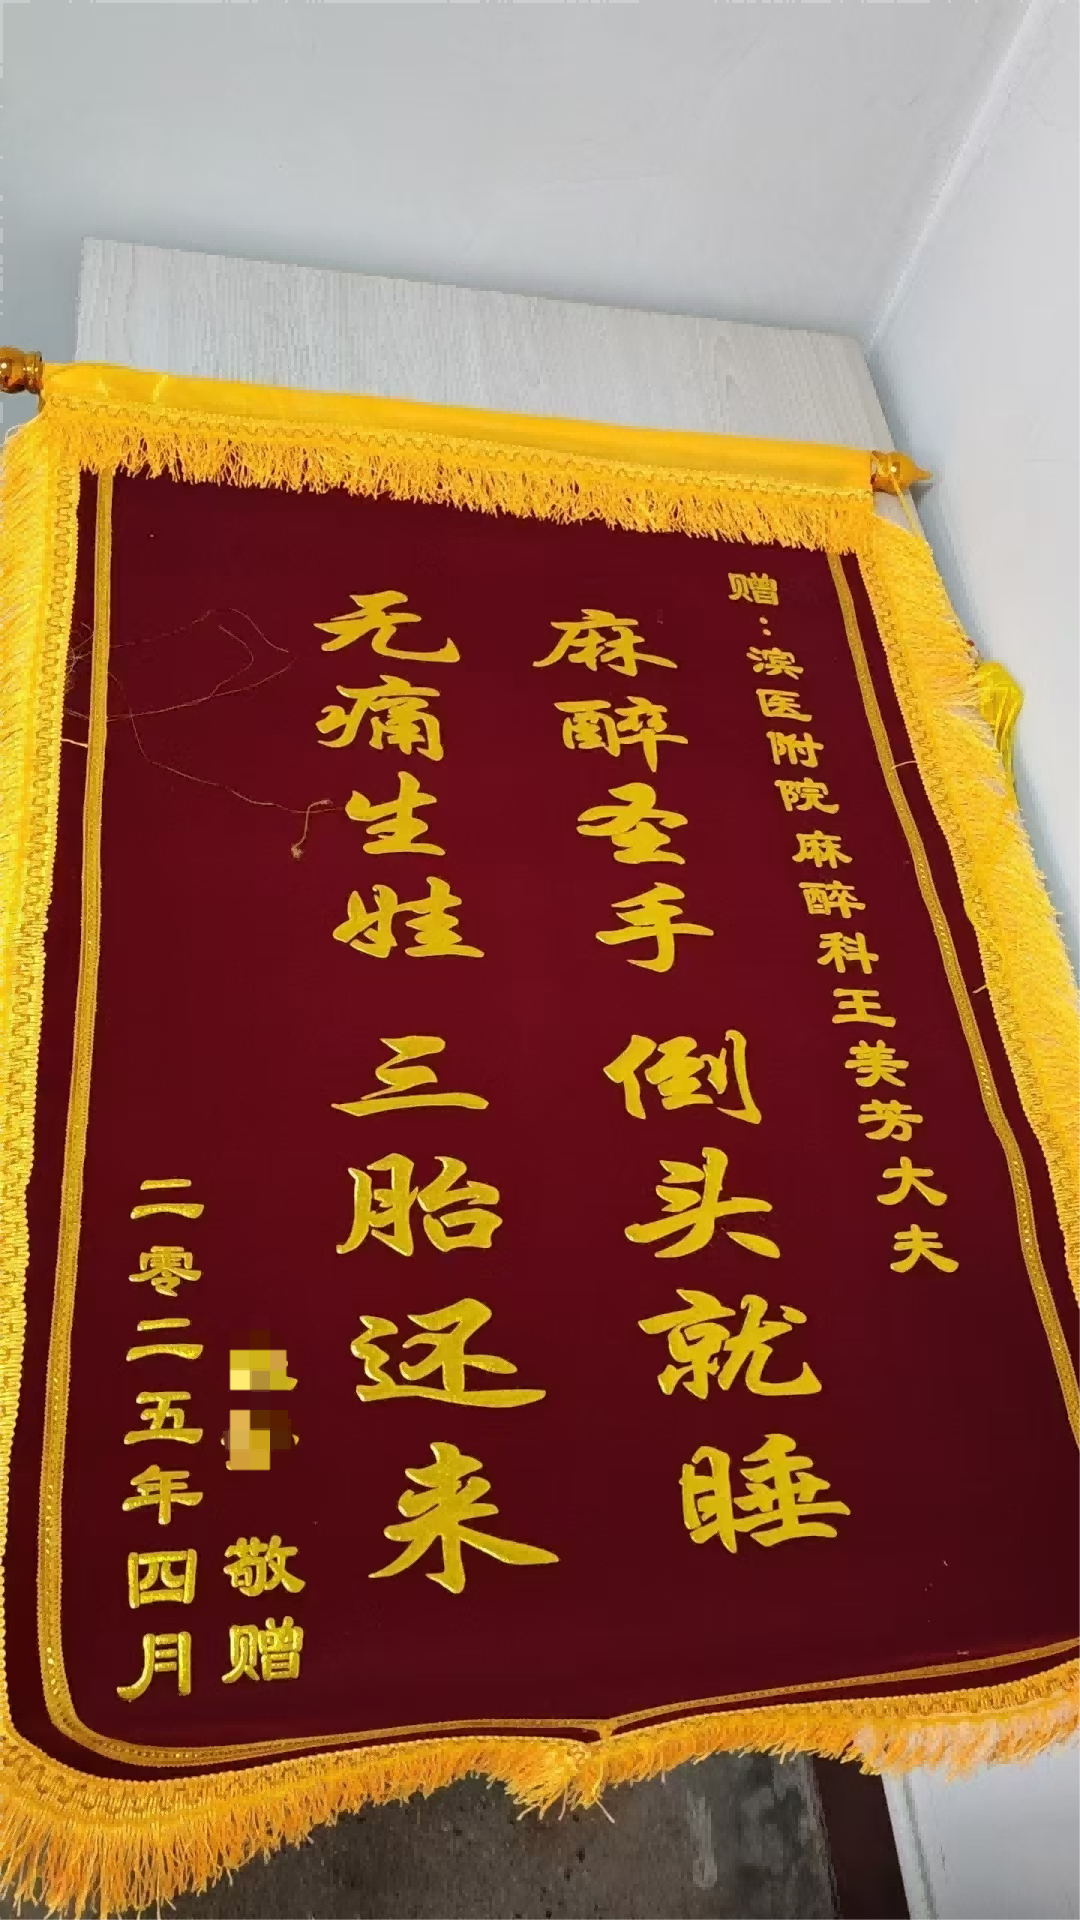 赠：滨医附院麻醉科王美芳大夫
麻醉圣手 倒头就睡
无痛生娃 三胎还来
敬赠
二零二五年四月